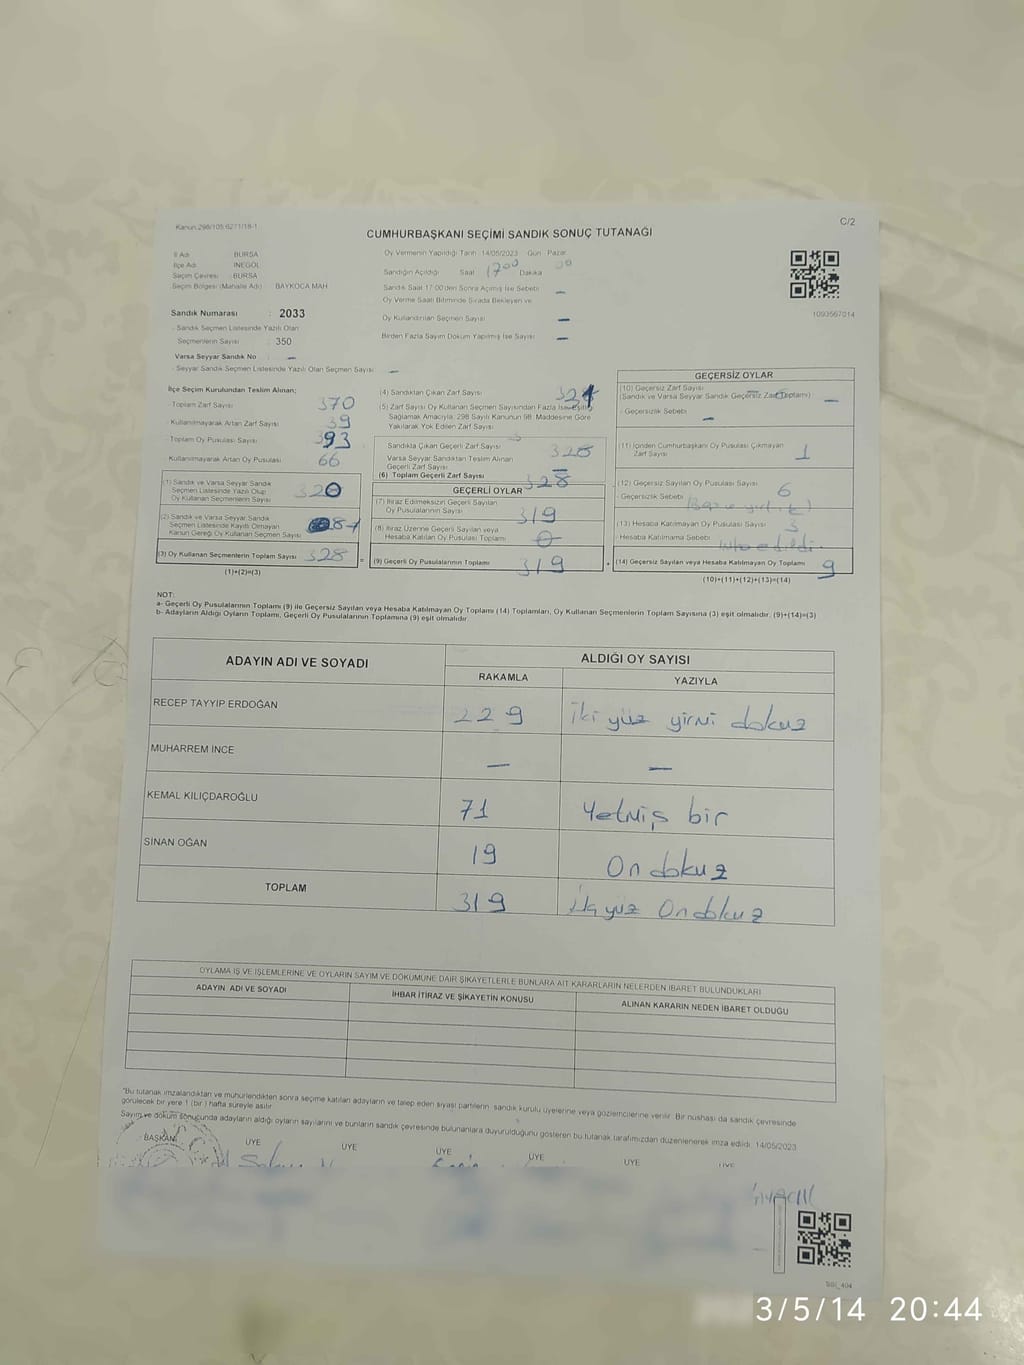 Kanun:298/105 6271/18-1
C/2
CUMHURBAŞKANI SEÇİMİ SANDIK SONUÇ TUTANAĞI
İl Adı BURSA
İlçe Adı İNEGÖL
Seçim Çevresi BURSA
Seçim Bölgesi (Mahalle Adı) BAYKOCA MAH
Oy Vermenin Yapıldığı Tarih 14/05/2023 Gün Pazar
Sandığın Açıldığı Saat 1700 Dakika 00
Sandık Saat 17:00'den Sonra Açılmış İse Sebebi –
Oy Verme Saati Bitiminde Sırada Bekleyen ve
Oy Kullandırılan Seçmen Sayısı –
Birden Fazla Sayım Döküm Yapılmış İse Sayısı –
1093567014
Sandık Numarası : 2033
Sandık Seçmen Listesinde Yazılı Olan
Seçmenlerin Sayısı : 350
Varsa Seyyar Sandık No –
Seyyar Sandık Seçmen Listesinde Yazılı Olan Seçmen Sayısı –
İlçe Seçim Kurulundan Teslim Alınan;
Toplam Zarf Sayısı 370
Kullanılmayarak Artan Zarf Sayısı 39
Toplam Oy Pusulası Sayısı 393
Kullanılmayarak Artan Oy Pusulası 66
(1) Sandık ve Varsa Seyyar Sandık
Seçmen Listesinde Yazılı Olup
Oy Kullanan Seçmenlerin Sayısı 320
(2) Sandık ve Varsa Seyyar Sandık
Seçmen Listesinde Kayıtlı Olmayan
Kanun Gereği Oy Kullanan Seçmen Sayısı 8
(3) Oy Kullanan Seçmenlerin Toplam Sayısı 328
(1)+(2)=(3)
(4) Sandıktan Çıkan Zarf Sayısı
(5) Zarf Sayısı Oy Kullanan Seçmen Sayısından Fazla İse Eşitliği
Sağlamak Amacıyla, 298 Sayılı Kanunun 98. Maddesine Göre
Yakılarak Yok Edilen Zarf Sayısı
Sandıkta Çıkan Geçerli Zarf Sayısı 328
Varsa Seyyar Sandıktan Teslim Alınan
Geçerli Zarf Sayısı –
(6) Toplam Geçerli Zarf Sayısı 328
GEÇERLİ OYLAR
(7) İtiraz Edilmeksizin Geçerli Sayılan
Oy Pusulalarının Sayısı 319
(8) İtiraz Üzerine Geçerli Sayılan veya
Hesaba Katılan Oy Pusulası Toplamı 0
(9) Geçerli Oy Pusulalarının Toplamı 319
GEÇERSİZ OYLAR
(10) Geçersiz Zarf Sayısı
(Sandık ve Varsa Seyyar Sandık Geçersiz Zarf Toplamı) –
Geçersizlik Sebebi –
(11) İçinden Cumhurbaşkanı Oy Pusulası Çıkmayan
Zarf Sayısı 1
(12) Geçersiz Sayılan Oy Pusulası Sayısı 6
Geçersizlik Sebebi
(13) Hesaba Katılmayan Oy Pusulası Sayısı 3
Hesaba Katılmama Sebebi
(14) Geçersiz Sayılan veya Hesaba Katılmayan Oy Toplamı 9
(10)+(11)+(12)+(13)=(14)
NOT:
a- Geçerli Oy Pusulalarının Toplamı (9) ile Geçersiz Sayılan veya Hesaba Katılmayan Oy Toplamı (14) Toplamları, Oy Kullanan Seçmenlerin Toplam Sayısına (3) eşit olmalıdır. (9)+(14)=(3)
b- Adayların Aldığı Oyların Toplamı, Geçerli Oy Pusulalarının Toplamına (9) eşit olmalıdır
ADAYIN ADI VE SOYADI
ALDIĞI OY SAYISI
RAKAMLA YAZIYLA
RECEP TAYYİP ERDOĞAN 229 iki yüz yirmi dokuz
MUHARREM İNCE – –
KEMAL KILIÇDAROĞLU 71 Yetmiş bir
SİNAN OĞAN 19 On dokuz
TOPLAM 319 üçyüz Ondokuz
OYLAMA İŞ VE İŞLEMLERİNE VE OYLARIN SAYIM VE DÖKÜMÜNE DAİR ŞİKAYETLERLE BUNLARA AİT KARARLARIN NELERDEN İBARET BULUNDUKLARI
ADAYIN ADI VE SOYADI İHBAR İTİRAZ VE ŞİKAYETİN KONUSU ALINAN KARARIN NEDEN İBARET OLDUĞU
*Bu tutanak imzalandıktan ve mühürlendikten sonra seçime katılan adayların ve talep eden siyasi partilerin sandık kurulu üyelerine veya gözlemcilerine verilir. Bir nüshası da sandık çevresinde
görülecek bir yere 1 (bir) hafta süreyle asılır.
Sayım ve döküm sonucunda adayların aldığı oyların sayılarını ve bunların sandık çevresinde bulunanlara duyurulduğunu gösteren bu tutanak tarafımızdan düzenlenerek imza edildi. 14/05/2023
BAŞKAN ÜYE ÜYE ÜYE ÜYE ÜYE ÜYE
SSI_404
3/5/14 20:44